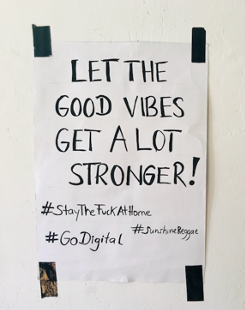 LET THE
GOOD VIBES
GET A LOT
STRONGER!
#StayTheFuckAtHome
#SunshineReggae
#GoDigital